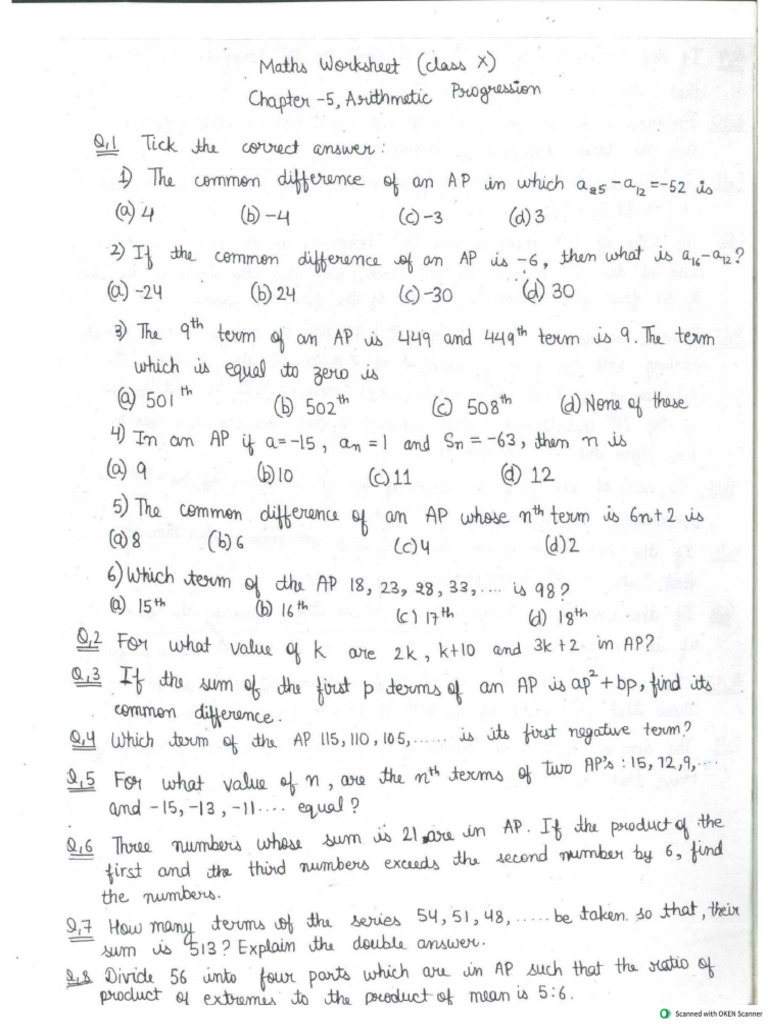 Maths Worksheet (class X)
Chapter -5, Arithmetic Progression
Q,1 Tick the correct answer:
1) The common difference of an AP in which a₂₅-a₁₂=-52 is
(a) 4 (b) -4 (c) -3 (d) 3
2) If the common difference of an AP is -6, then what is a₁₆-a₁₂?
(a) -24 (b) 24 (c) -30 (d) 30
3) The 9th term of an AP is 449 and 449th term is 9. The term
which is equal to zero is
(a) 501th (b) 502th (c) 508th (d) None of these
4) In an AP if a=-15, aₙ=1 and Sₙ=-63, then n is
(a) 9 (b) 10 (c) 11 (d) 12
5) The common difference of an AP whose nth term is 6n+2 is
(a) 8 (b) 6 (c) 4 (d) 2
6) Which term of the AP 18, 23, 28, 33,.... is 98?
(a) 15th (b) 16th (c) 17th (d) 18th
Q,2 For what value of k are 2k, k+10 and 3k+2 in AP?
Q,3 If the sum of the first p terms of an AP is ap²+bp, find its
common difference.
Q,4 Which term of the AP 115, 110, 105,...... is its first negative term?
Q,5 For what value of n, are the nth terms of two AP's : 15, 12, 9,...
and -15, -13, -11.... equal?
Q,6 Three numbers whose sum is 21 are in AP. If the product of the
first and the third numbers exceeds the second number by 6, find
the numbers.
Q,7 How many terms of the series 54, 51, 48,..... be taken so that, their
sum is 513? Explain the double answer.
Q,8 Divide 56 into four parts which are in AP such that the ratio of
product of extremes to the product of mean is 5:6.
Scanned with OKEN Scanner